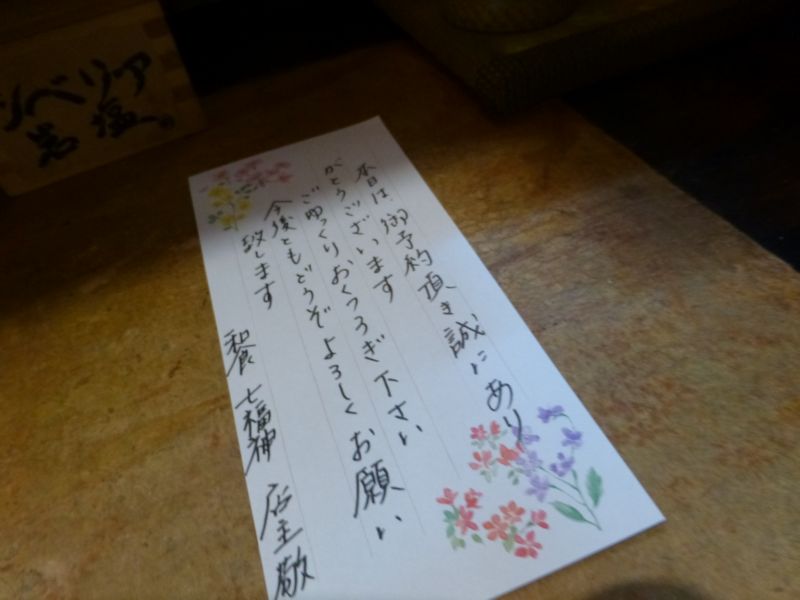 シベリア
岩塩。
本日は、御予約頂き誠にあり
がとうございます
ごゆっくりおくつろぎ下さい
今後ともどうぞよろしくお願い
致します
和食 七福神 店主敬